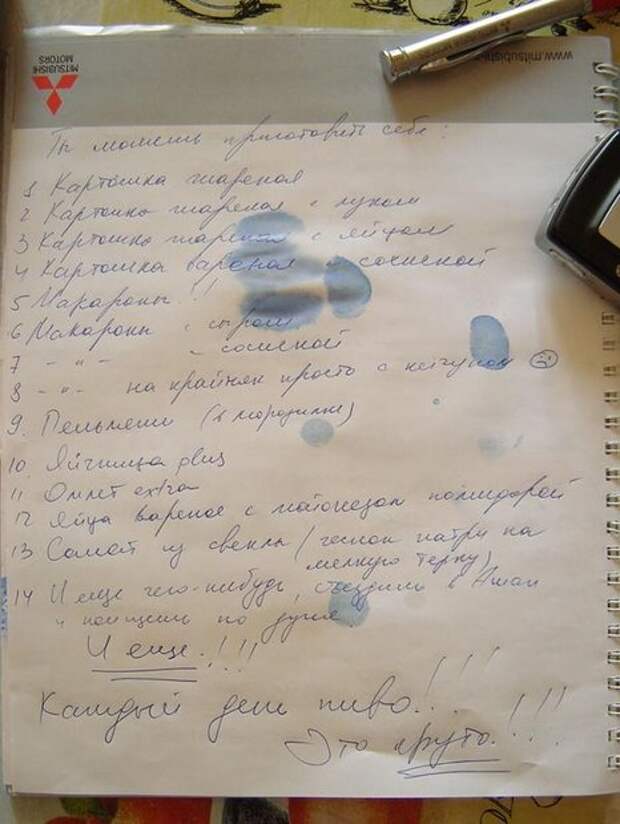 MITSUBISHI
MOTORS
www.mitsubishi
Ты можешь приготовить себе:
1 Картошка жареная
2 Картошка жареная с луком
3 Картошка жареная с яйцом
4 Картошка вареная с сосиской
5 Макароны!!
6 Макароны с сыром
7 -"- с сосиской
8 -"- на крайняк просто с кетчупом ☹
9. Пельмени (в морозилке)
10. Яичница plus
11 Омлет extra
12 Яйца вареные с майонезом помидорой
13 Салат из свеклы (чеснок натри на
мелкую терку)
14 И еще чего-нибудь, съездить в Ашан
и поищешь по душе.
И еще!!!
Каждый день пиво!!!
Это круто!!!